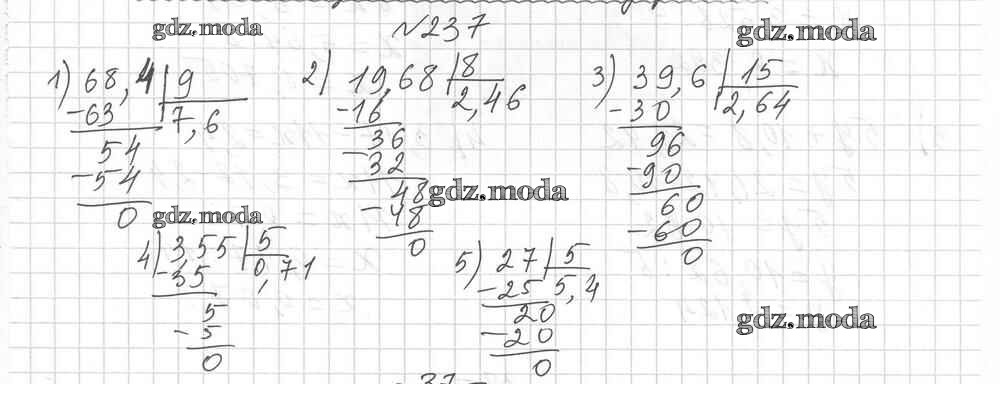 №237
gdz.moda
gdz.moda
1) 68,4 | 9
-63
7,6
54
-54
0
2) 19,68 | 8
-16
2,46
36
-32
48
-48
0
3) 39,6 | 15
-30
2,64
96
-90
60
-60
0
gdz.moda
gdz.moda
4) 3,55 | 5
-35
0,71
5
-5
0
5) 27 | 5
-25
5,4
20
-20
0
gdz.moda